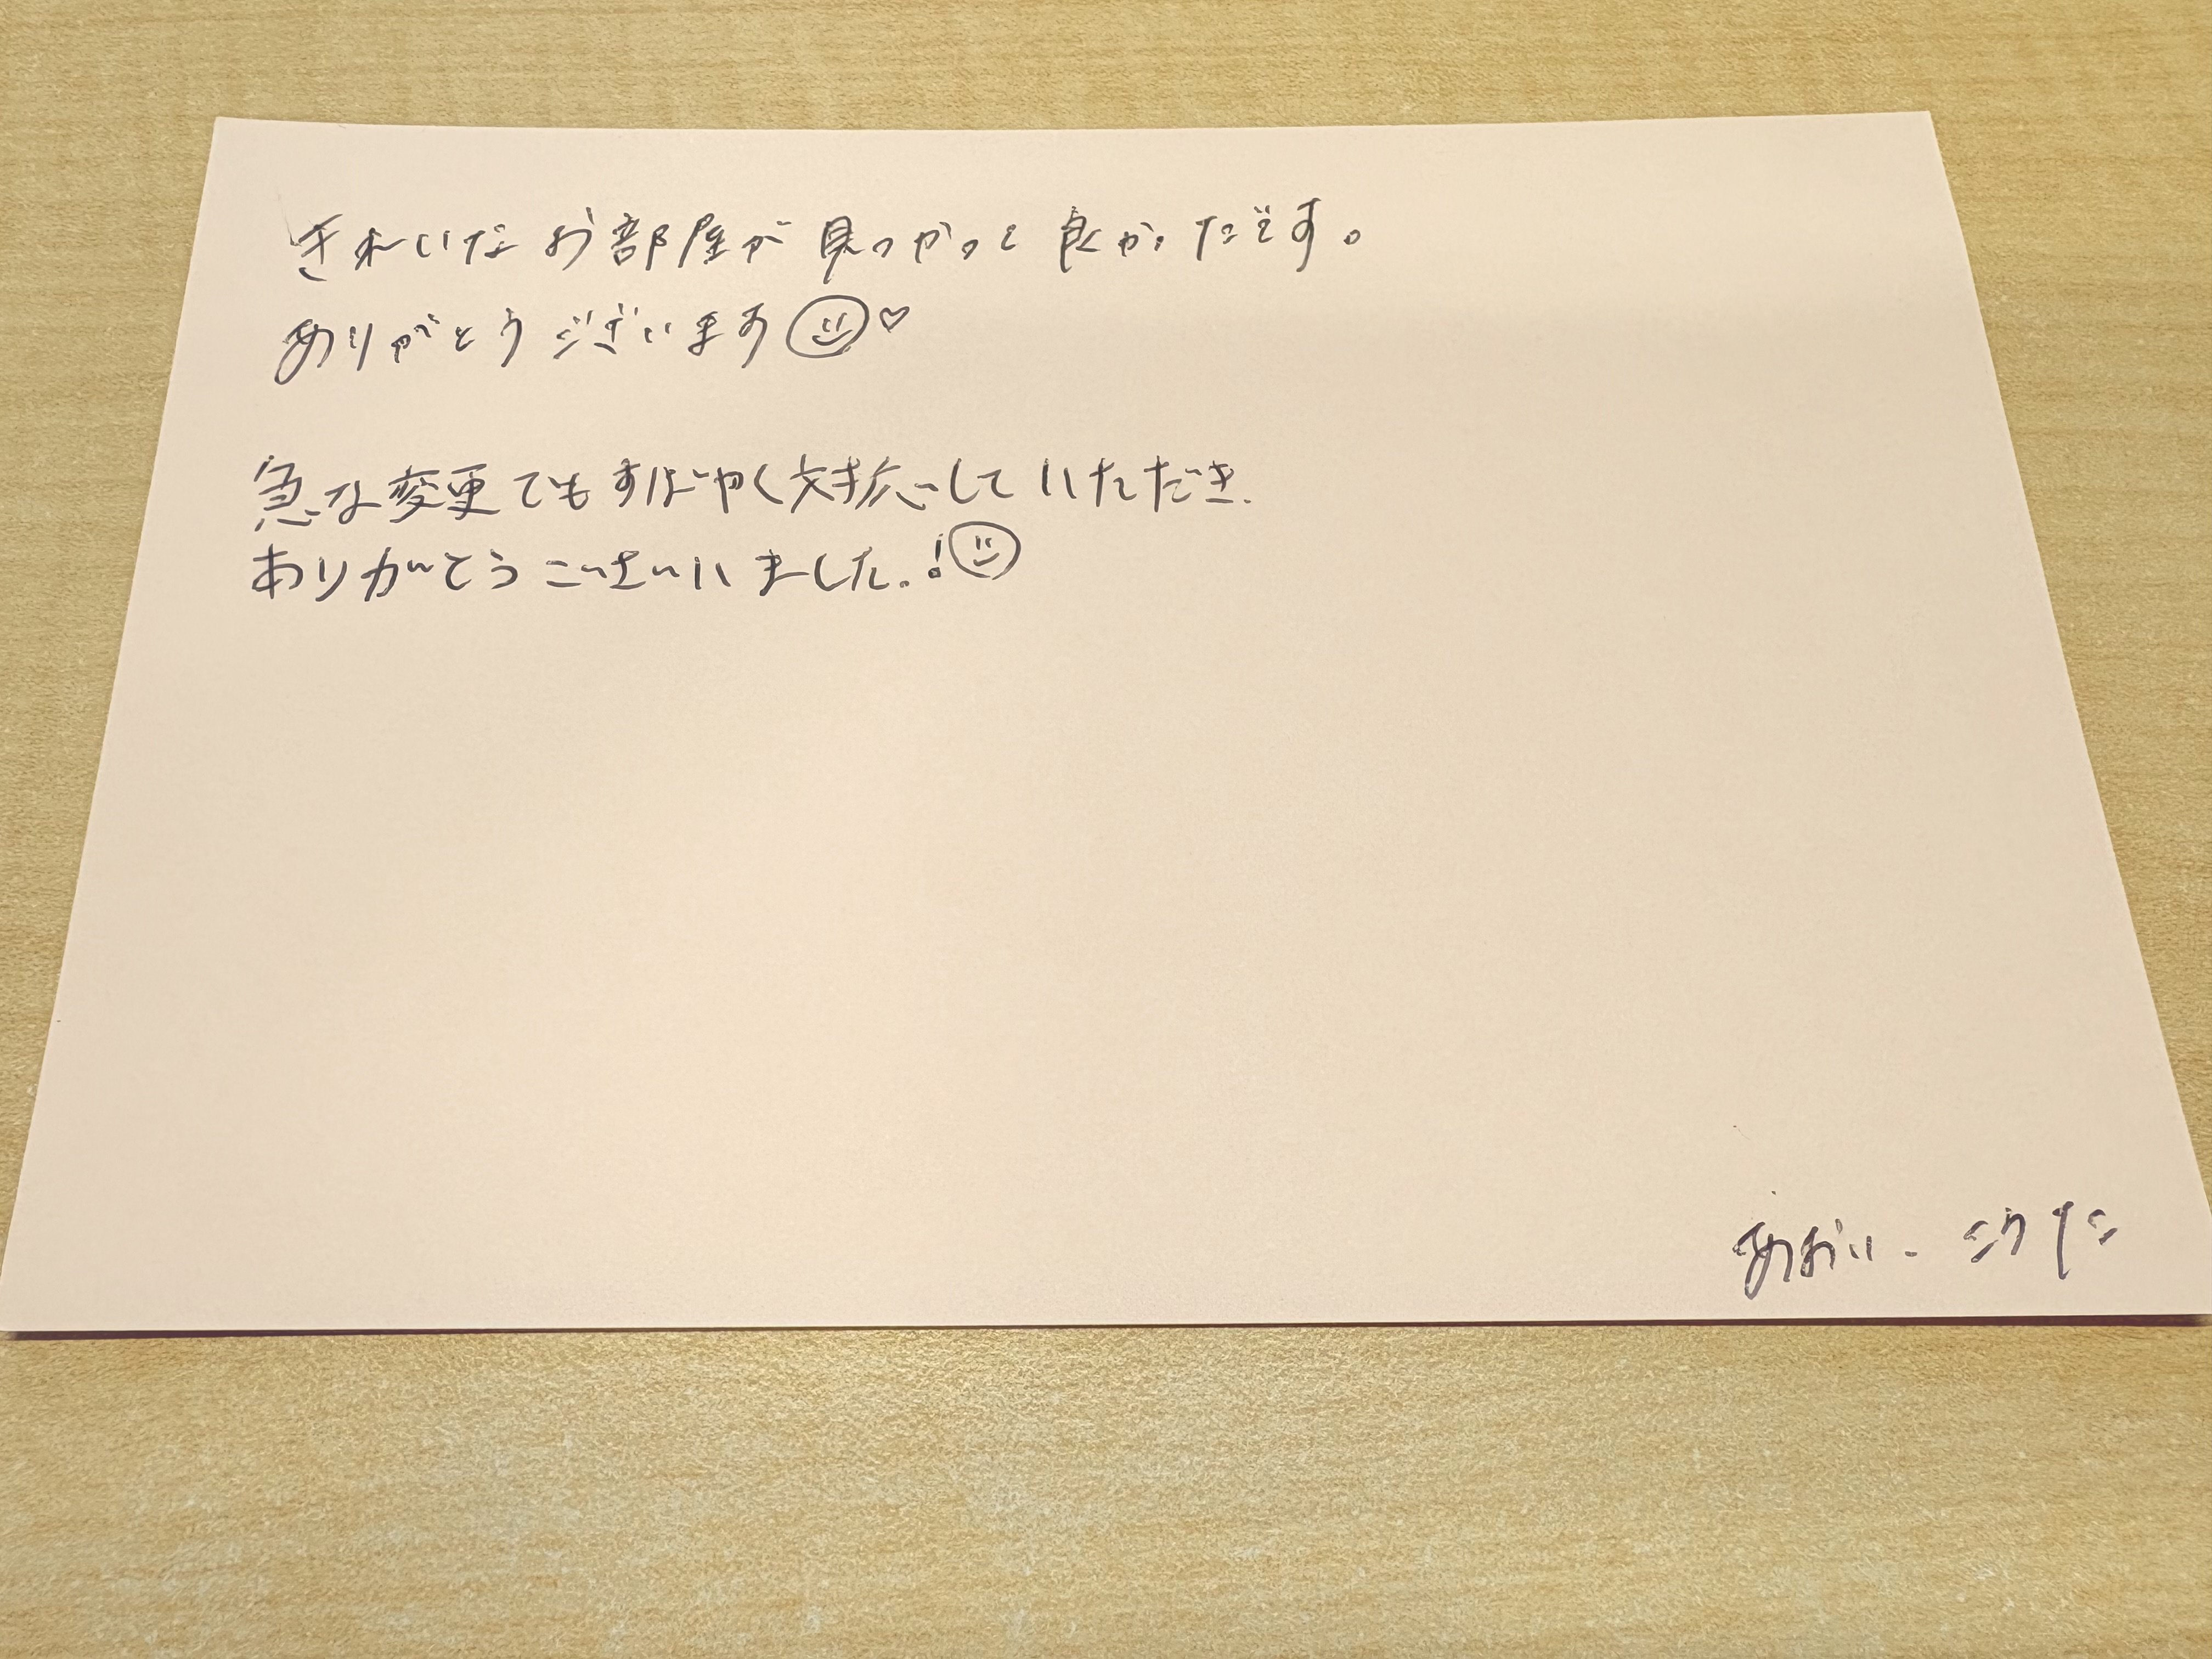 きれいなお部屋が見つかって良かったです。
ありがとうございます☺♡
急な変更でもすばやく対応していただき、
ありがとうございました。!☺
あおい. こうた